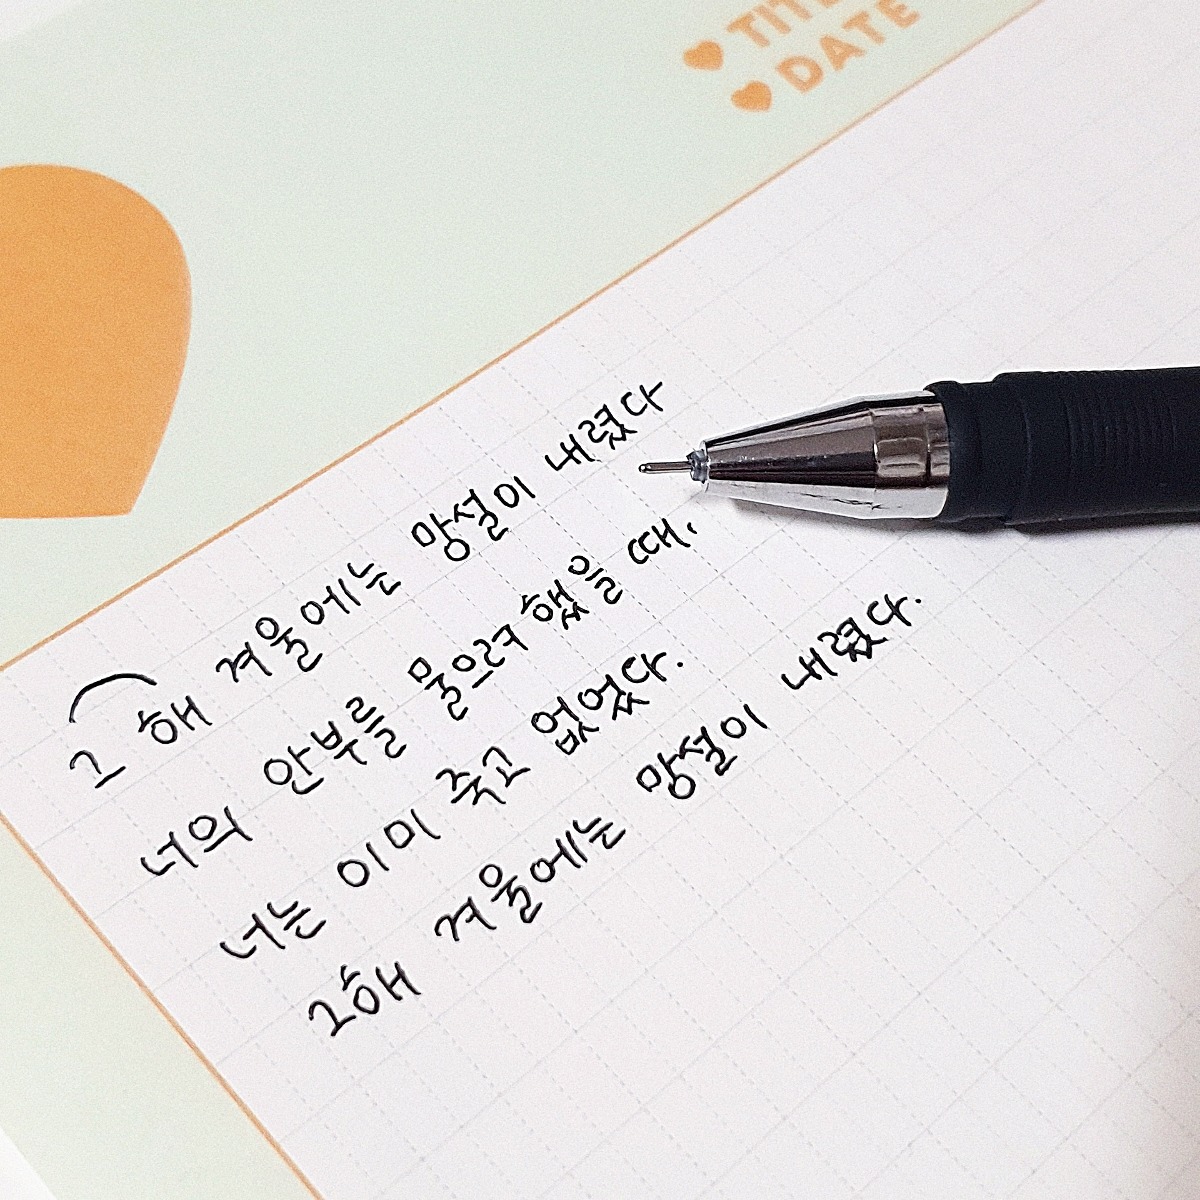 TITLE
DATE
그 해 겨울에는 망설이 내렸다
너의 안부를 물으려 했을 때,
너는 이미 죽고 없었다.
그해 겨울에는 망설이 내렸다.